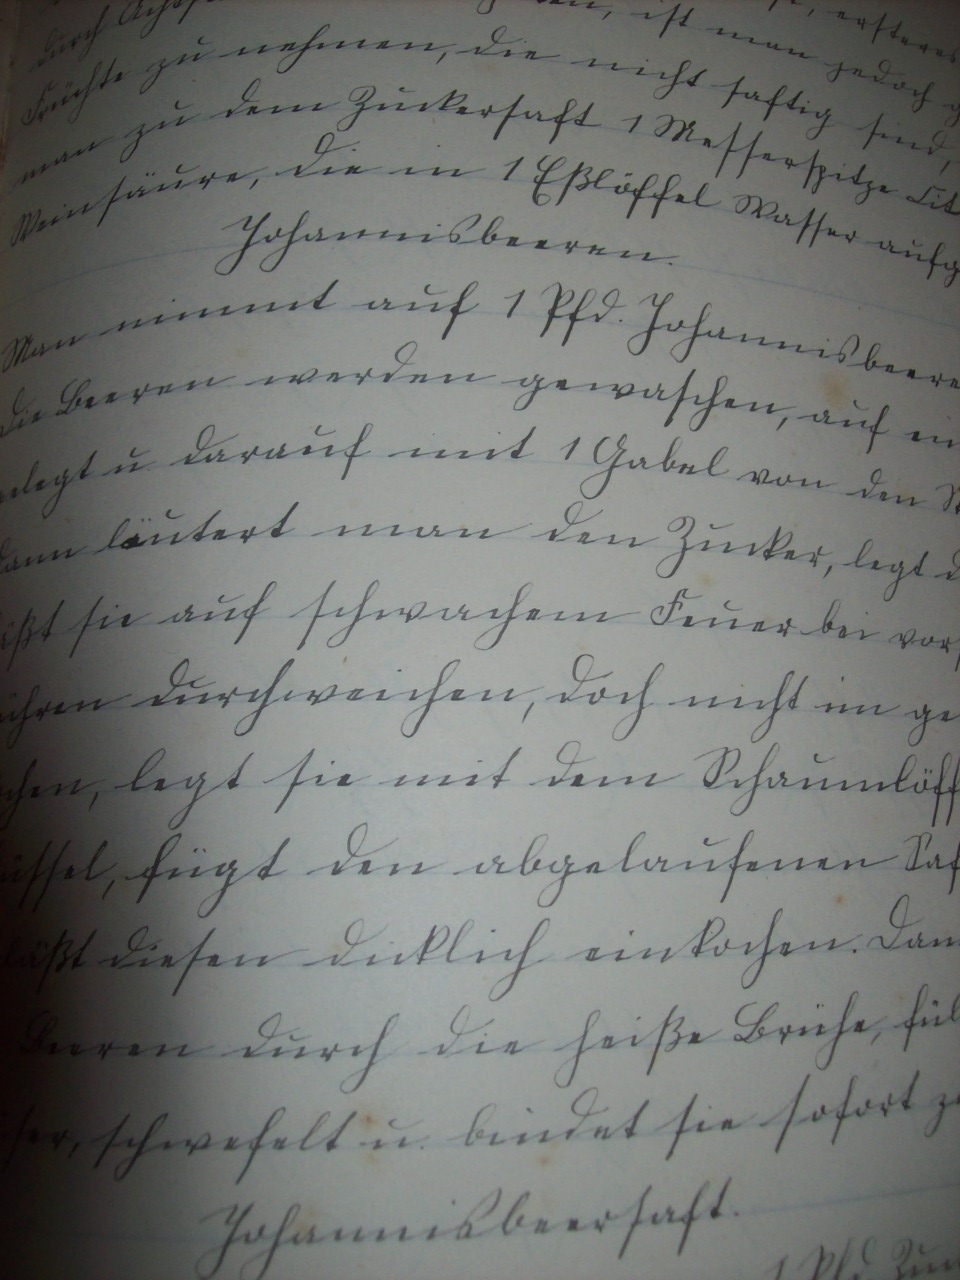 durch
Früchte zu nehmen, die nicht saftig sind,
ist man jedoch
ersteres
man zu dem Zuckersaft 1 Messerspitze Cit
Weinsäure, die in 1 Eßlöffel Wasser aufg
Johannisbeeren.
Man nimmt auf 1 Pfd. Johannisbeere
die Beeren werden gewaschen, auf ein
elegt u darauf mit 1 Gabel von den St
dann läutert man den Zucker, legt d
äßt sie auf schwachem Feuer bei vors
ühren durchweichen, doch nicht im ge
chen, legt sie mit dem Schaumlöff
üssel, fügt den abgelaufenen Saf
läßt diesen dicklich einkochen. Dan
Beeren durch die heiße Brühe, fül
ser, schwefelt u. bindet sie sofort z
Johannisbeersaft.
1 Pfd. Zu